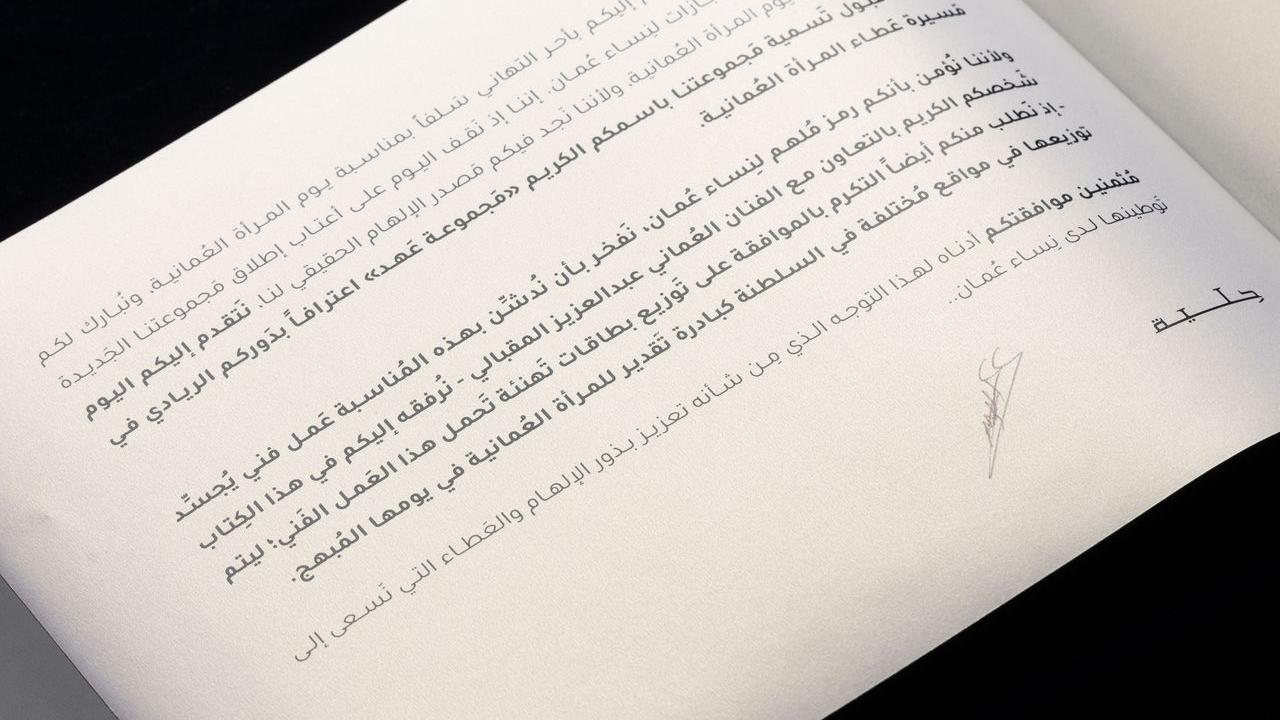 إليكم بأحر التهاني سَلفاً بمناسبة يوم المرأة العُمانية، ونُبارك لكم
لنِساء عُمان. إننا إذ نَقف اليوم على أعتاب إطلاق مَجموعتنا الجَديدة
يوم المرأة العُمانية، ولأننا نَجد فيكم مَصدر الإلهام الحقيقي لنا. نَتقدم إليكم اليوم
تَسمية مَجموعتنا باسمكم الكريم «مَجموعة عَهد» اعترافاً بدَوركم الريادي في
مَسيرة عَطاء المرأة العُمانية.
ولأننا نُؤمن بأنكم رمز مُلهم لنِساء عُمان، نَفخر بأن نُدشّن بهذه المُناسبة عَمل فني يُجسّد
شَخصكم الكريم بالتعاون مع الفنان العُماني عبدالعزيز المقبالي - نُرفقه إليكم في هذا الكِتاب
-إذ نَطلب منكم أيضاً التكرم بالموافقة على تَوزيع بطاقات تَهنئة تَحمل هذا العَمل الفَني؛ ليتم
توزيعها في مواقع مُختلفة في السلطنة كبادرة تَقدير للمرأة العُمانية في يومها المُبهج.
مُثمنين موافقتكم أدناه لهذا التوجه الذي مِن شأنه تعزيز بدَور الإلهام والعَطاء التي نَسعى إلى
تَوطينها لدى نِساء عُمان..
حِلْيَة